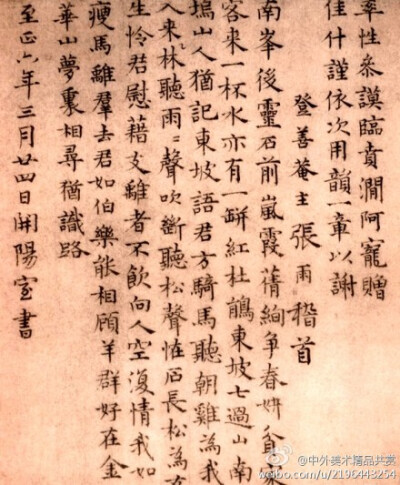 率性叅謨臨賁澗阿寵贈
佳什謹依次用韻一章以謝
登善菴主張雨稽首
南峯後靈石前嵐霞蒨絢爭春妍負
客來一杯水亦有一缾紅杜鵑東坡七過山南
塢山人猶記東坡語君方騎馬聽朝雞為我
入來林聽雨〻聲吹斷聽松聲恠石長松為
生怜君慰藉支離者不飲向人空復情我如
瘦馬離羣去君如伯樂能相顧羊群好在金
華山夢裏相尋猶識路
至正六年三月廿四日開陽室書
@中外美术精品共赏
weibo.com/u/2196443254